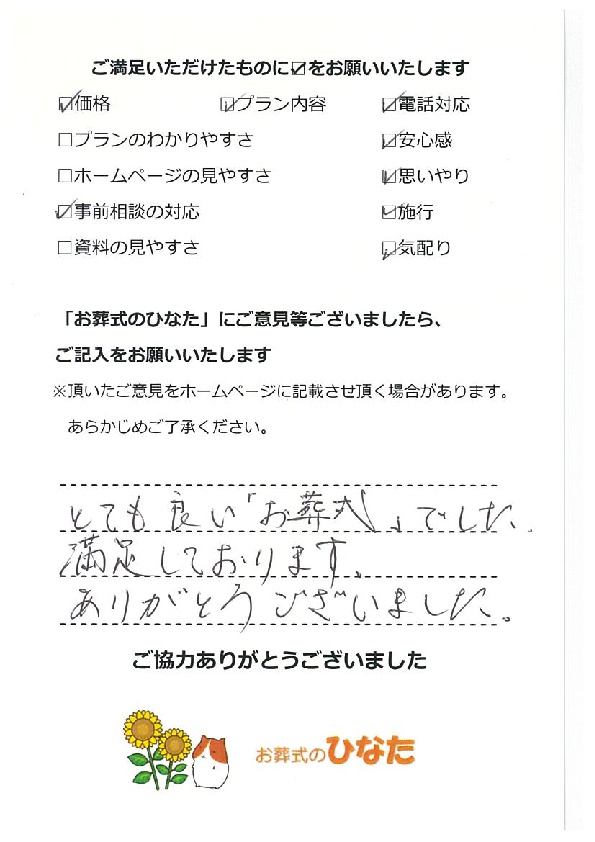 ご満足いただけたものに☑をお願いいたします
☑価格 ☑プラン内容 ☑電話対応
□プランのわかりやすさ ☑安心感
□ホームページの見やすさ ☑思いやり
☑事前相談の対応 ☑施行
□資料の見やすさ ☑気配り
「お葬式のひなた」にご意見等ございましたら、
ご記入をお願いいたします
※頂いたご意見をホームページに記載させ頂く場合があります。
あらかじめご了承ください。
とても良い「お葬式」でした、
満足しております。
ありがとうございました。
ご協力ありがとうございました
お葬式のひなた